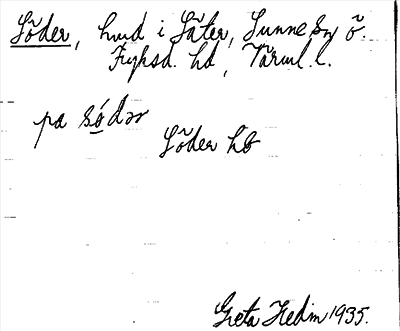 Söder, hmd i Säter, Sunne sn, ö.
Fryksd. hd, Värml. l.
pa sǿdər
Söder hb
Greta Hedin 1935.